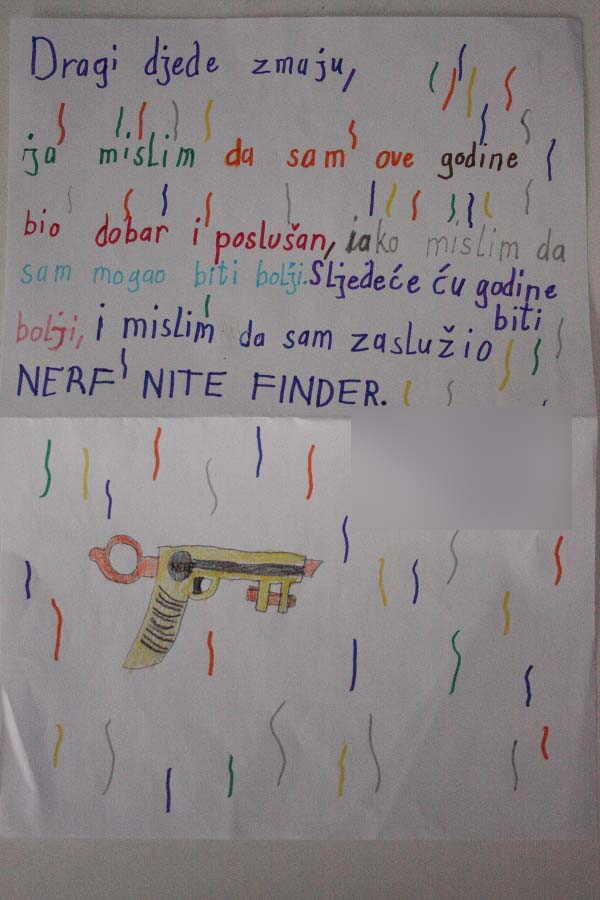 Dragi djede zmaju,
ja mislim da sam ove godine
bio dobar i poslušan, iako mislim da
sam mogao biti bolji. Sljedeće ću godine
biti
bolji, i mislim da sam zaslužio
NERF NITE FINDER.
NERF